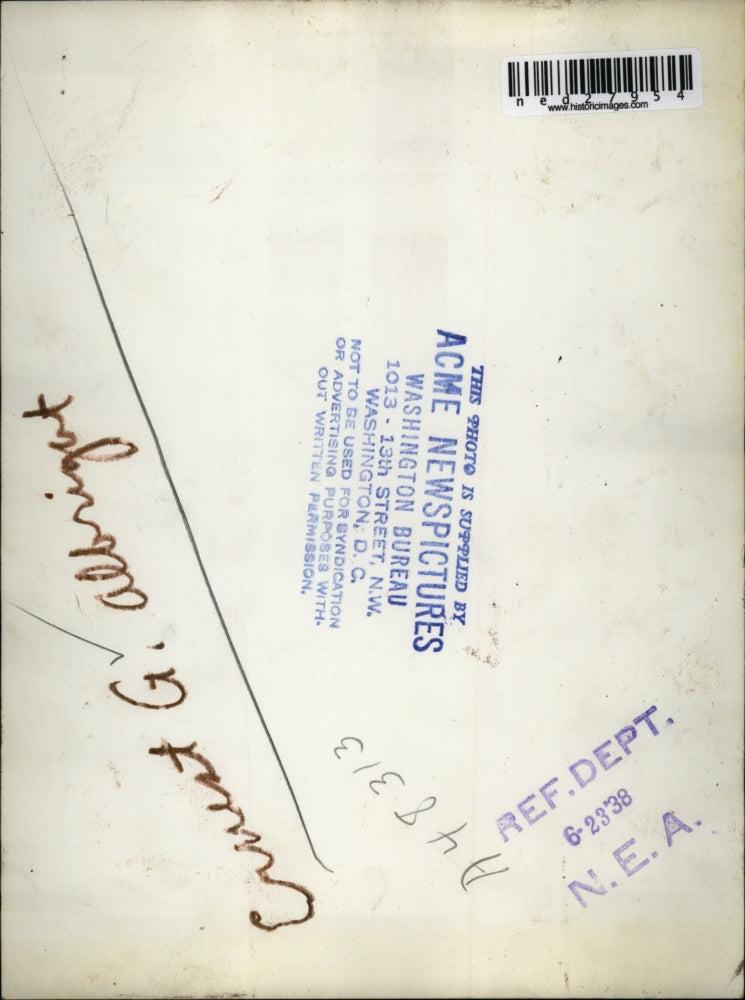 ned27954
www.historicimages.com
THIS PHOTO IS SUPPLIED BY
ACME NEWSPICTURES
WASHINGTON BUREAU
1013 - 13th STREET, N.W.
WASHINGTON, D. C.
NOT TO BE USED FOR SYNDICATION
OR ADVERTISING PURPOSES WITH-
OUT WRITTEN PERMISSION.
G.
A48313
REF. DEPT.
6-23'38
N. E. A.